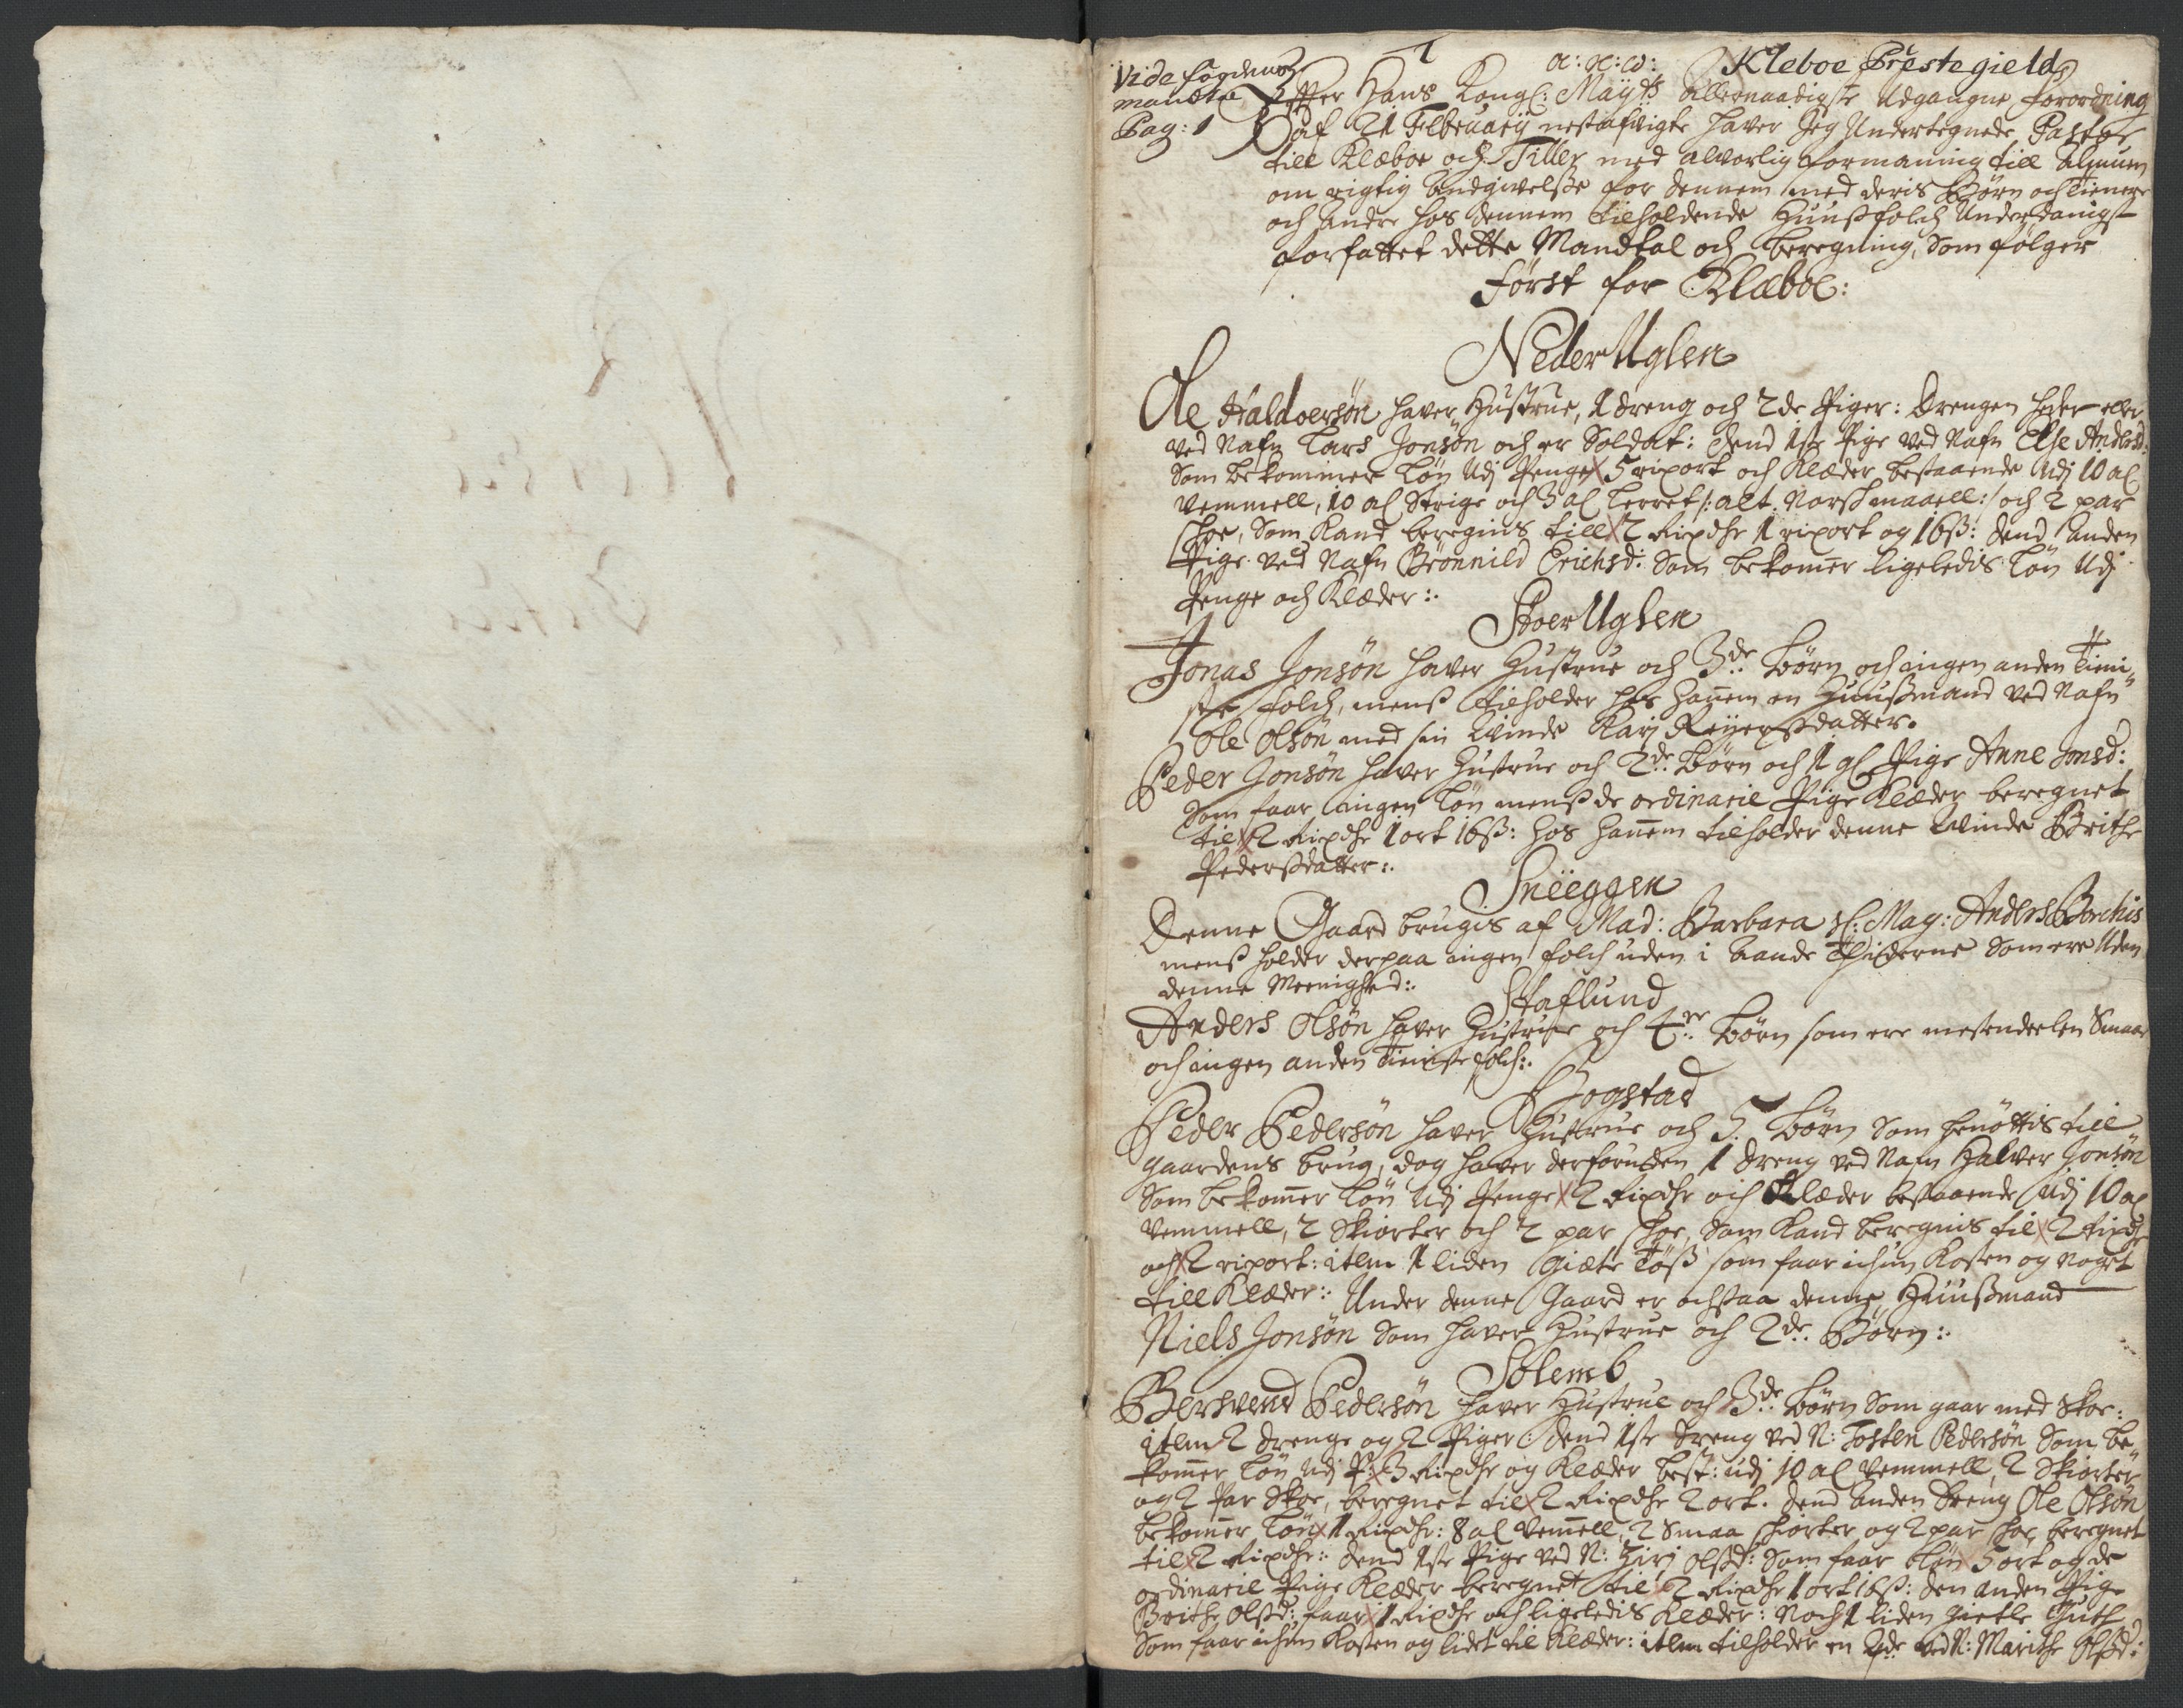 1
α: ϰ: ω:
Kleboe Prestegield
Vide fogdens
mandtal
Pag: 1
Effter Hans Kongl: Maÿts Allernaadigste Udgangne forordning
af 21 Februarÿ nestafvigte haver Jeg Undertegnede Pastor
till Klæboe och Tiller med alvorlig formaning till Almuen
om rigtig Andgivelsse for dennem med deris Børn och Tienere
och Andre hos dennem tilholdende Huusfolch Underdanigst
forfattet dette Mandtal och beregning, Som følger
først for Klæboe:
Neder Uglen
Ole Haldoersøn haver Hustrue, 1 dreng och 2de Piger: Drengen heder eller
ved Nafn Lars Jonsøn och er Soldat: Dend 1ste Pige ved Nafn Else Andersd:
Som bekommer Løn Udj Penge 5 rixort och Klæder bestaaende Udj 10 al
Vemmell, 10 al Strige och 3 al Lerret /: alt Norsk maaell: / och 2 par
Skoe, Som Kand beregnis till 2 Rixdlr 1 rixort og 16 ß: Dend Anden
Pige ved Nafn Brønnild Erichsd: Som bekomer ligeledis Løn Udj
Penge och Klæder:.
Stoer Uglen
Jonas Jonsøn haver Hustrue och 3de Børn och ingen anden Tieni-
ste folch, menß tilholder hos hannem en Huußmand ved Nafn
Ole Olsøn med sin Qvinde Karj Reÿerßdatter.
Peder Jonsøn haver Hustrue och 2de Børn och 1 gl Pige Anne Jonsd:
Som faar ingen Løn menß de ordinarie Pige Klæder beregnet
til 2 Rixdlr 1 ort 16 ß: hos hannem tilholder denne Qvinde Brithe
Pederßdatter:.
Sneeggen
Denne Gaard brugis af Mad: Barbara Sl: Mag: Anders Borchis
menß holder derpaa ingen folch uden i Aande Thiderne Som ere Uden
denne Meenighed:.
Staflund
Anders Olsøn haver Hustrue och 4re Børn som ere mestendeelen Smaae
och ingen anden Tieniste folch:.
Hogstad
Peder Pedersøn haver Hustrue och 5 Børn Som henøttis till
gaardens brug, dog haver derforuden 1 dreng ved Nafn Halver Jonsøn
Som bekomer Løn Udj Penge 2 Rixdlr och Klæder bestaaende Udj 10 al
Vemmell, 2 Skiorter och 2 par Skoe, Som Kand beregnis til 2 Rixdlr
och 2 rixort: item 1 liden giæte Tøß som faar ichun Kosten og noget
till Klæder:. Under denne Gaard er ochsaa denne Huußmand
Niels Jonsøn Som haver Hustrue och 2de Børn:.
Solemb
Bersvend Pedersøn haver Hustrue och 3de Børn Som gaar med Skoe:
item 2 drenge og 2 Piger: Dend 1ste dreng ved N: Tosten Pedersøn Som be-
komer Løn Udj P: 3 Rixdlr og Klæder best: udj 10 al Vemmell, 2 Skiorter
og 2 Par Skoe, beregnet til 2 Rixdlr 2 ort. Dend anden dreng Ole Olsøn
bekomer Løn 1 Rixdlr: 8 al Vemell, 2 Smaa Skiorter og 2 par Skoe beregnet
til 2 Rixdlr:. Dend 1ste Pige ved N: Zirj Olßd: Som faar Løn 5 ort og de
ordinarie Pige Klæder beregnet til 2 Rixdlr 1 ort 16 ß: Den anden Pige
Brithe Olßd: faar 1 Rixdlr och ligeledis Klæder: Noch 1 liden Giete Guth
Som faar ichun Kosten og lidet til Klæder: item tilholder en Qde ved N: Marithe Olßd: